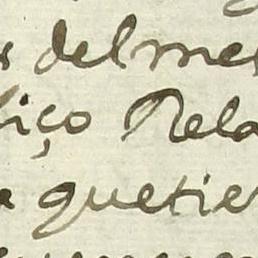 s del mes
hiço Rela
a que tie